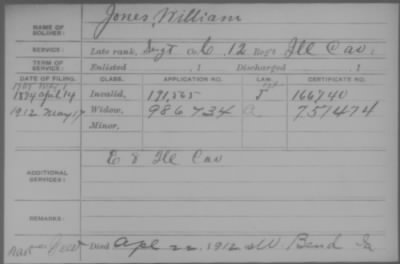 Jones, William
NAME OF SOLDIER:
SERVICE: Late rank, Sergt Co. C, 12 Reg't Ill Cav.
TERM OF SERVICE: Enlisted , 1 Discharged , 1
DATE OF FILING. CLASS. APPLICATION NO. LAW. CERTIFICATE NO.
1874 April 14 Invalid, 191,565 166740
1912. May 17 Widow, 986734 751474
Minor,
ADDITIONAL SERVICES: E 8 Ill Cav
REMARKS:
Died Apl 22, 1912 at W. Bend Ia